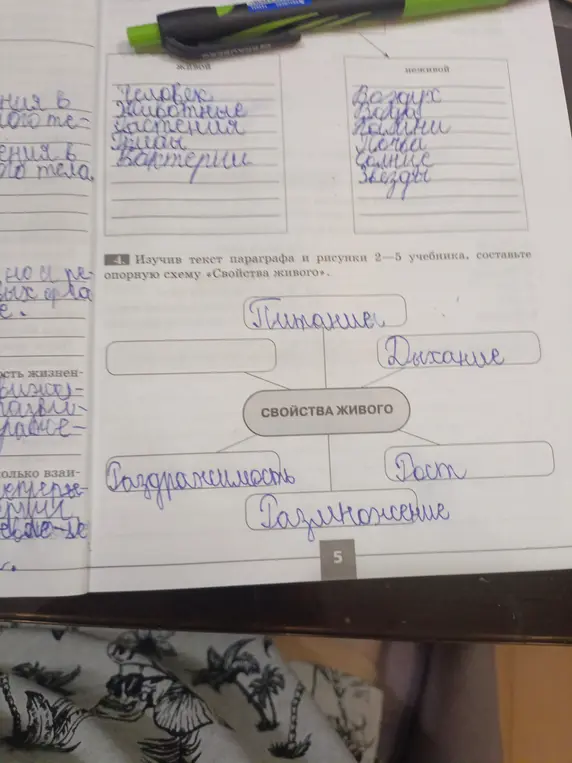 живой
неживой
Человек
Животные
Растения
Грибы
Бактерии
Воздух
Вода
Камни
Почва
Солнце
Звезды
ния в
ного те-
ения в
го тела.
4. Изучив текст параграфа и рисунки 2—5 учебника, составьте
опорную схему «Свойства живого».
Питание
Дыхание
СВОЙСТВА ЖИВОГО
Раздражимость
Рост
Размножение
но и ре-
е.
сть жизнен-
олько взаи-
5